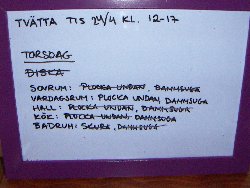 TVÄTTA TIS 24/4 KL. 12-17
TORSDAG
DISKA
SOVRUM: PLOCKA UNDAN, DAMMSUGA
VARDAGSRUM: PLOCKA UNDAN, DAMMSUGA
HALL: PLOCKA UNDAN, DAMMSUGA
KÖK: PLOCKA UNDAN, DAMMSUGA
BADRUM: SKURA, DAMMSUGA